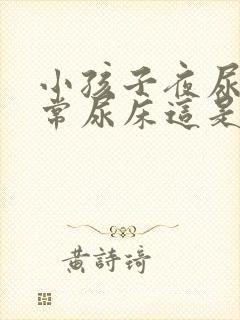 小孩子夜尿
常尿床這是
黃詩琦